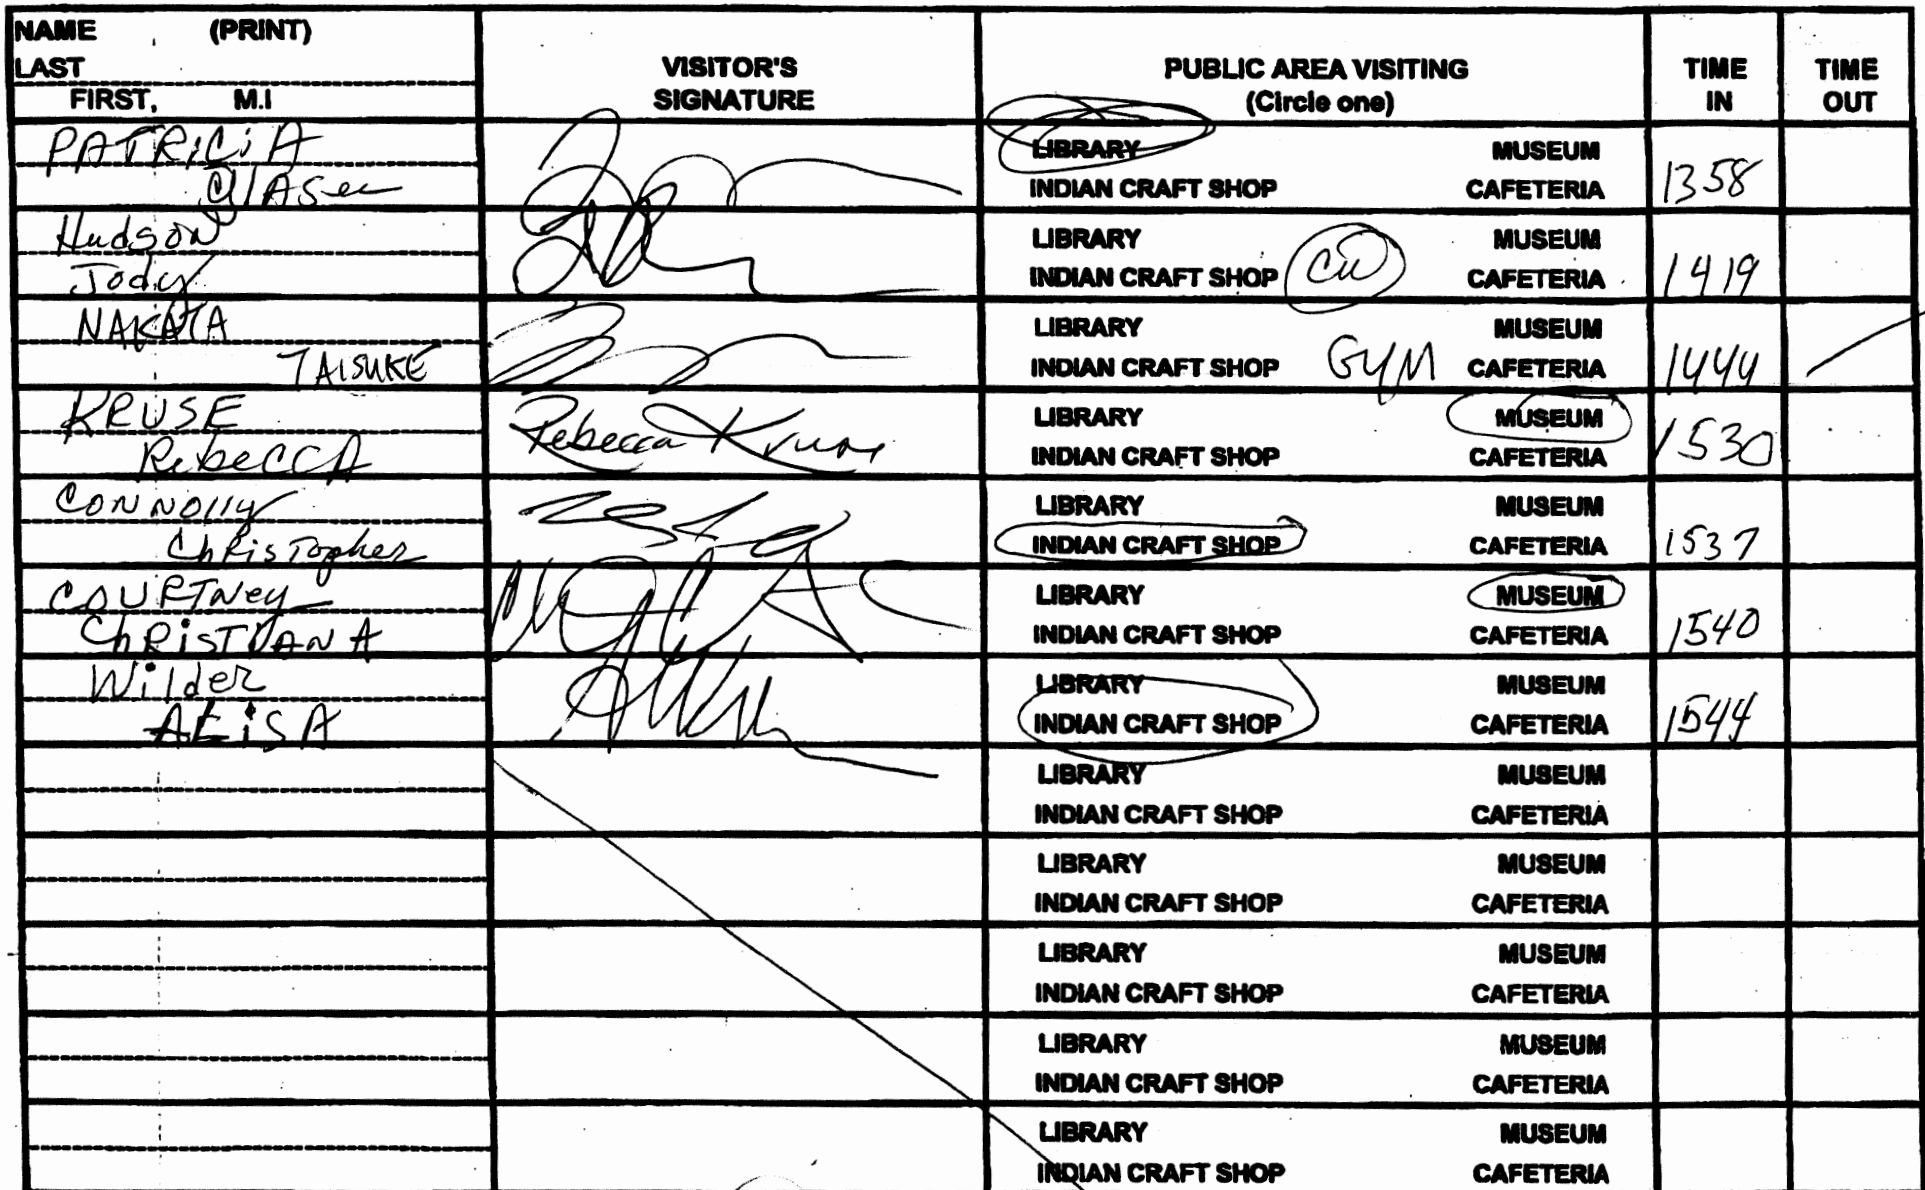 NAME (PRINT)
LAST
FIRST, M.I
VISITOR'S
SIGNATURE
PUBLIC AREA VISITING
(Circle one)
TIME
IN
TIME
OUT
PATRICiA
LIBRARY MUSEUM
INDIAN CRAFT SHOP CAFETERIA
1358
Hudson
Jody
LIBRARY MUSEUM
INDIAN CRAFT SHOP CU CAFETERIA
1419
NAKATA
TAISUKE
LIBRARY MUSEUM
INDIAN CRAFT SHOP GYM CAFETERIA
1444
KRUSE
RebeCCA
Rebecca Kruse
LIBRARY MUSEUM
INDIAN CRAFT SHOP CAFETERIA
1530
CONNOlly
ChRisTopher
LIBRARY MUSEUM
INDIAN CRAFT SHOP CAFETERIA
1537
COURTNey
ChRiSTIANA
LIBRARY MUSEUM
INDIAN CRAFT SHOP CAFETERIA
1540
WildeR
LIBRARY MUSEUM
INDIAN CRAFT SHOP CAFETERIA
1544
LIBRARY MUSEUM
INDIAN CRAFT SHOP CAFETERIA
LIBRARY MUSEUM
INDIAN CRAFT SHOP CAFETERIA
LIBRARY MUSEUM
INDIAN CRAFT SHOP CAFETERIA
LIBRARY MUSEUM
INDIAN CRAFT SHOP CAFETERIA
LIBRARY MUSEUM
INDIAN CRAFT SHOP CAFETERIA